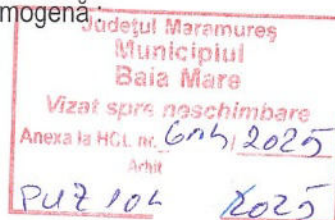 mogenă :
Județul Maramureș
Municipiul
Baia Mare
Vizat spre neschimbare
Anexa la HCL nr. / 2025
Arhit
PUZ 104 2025